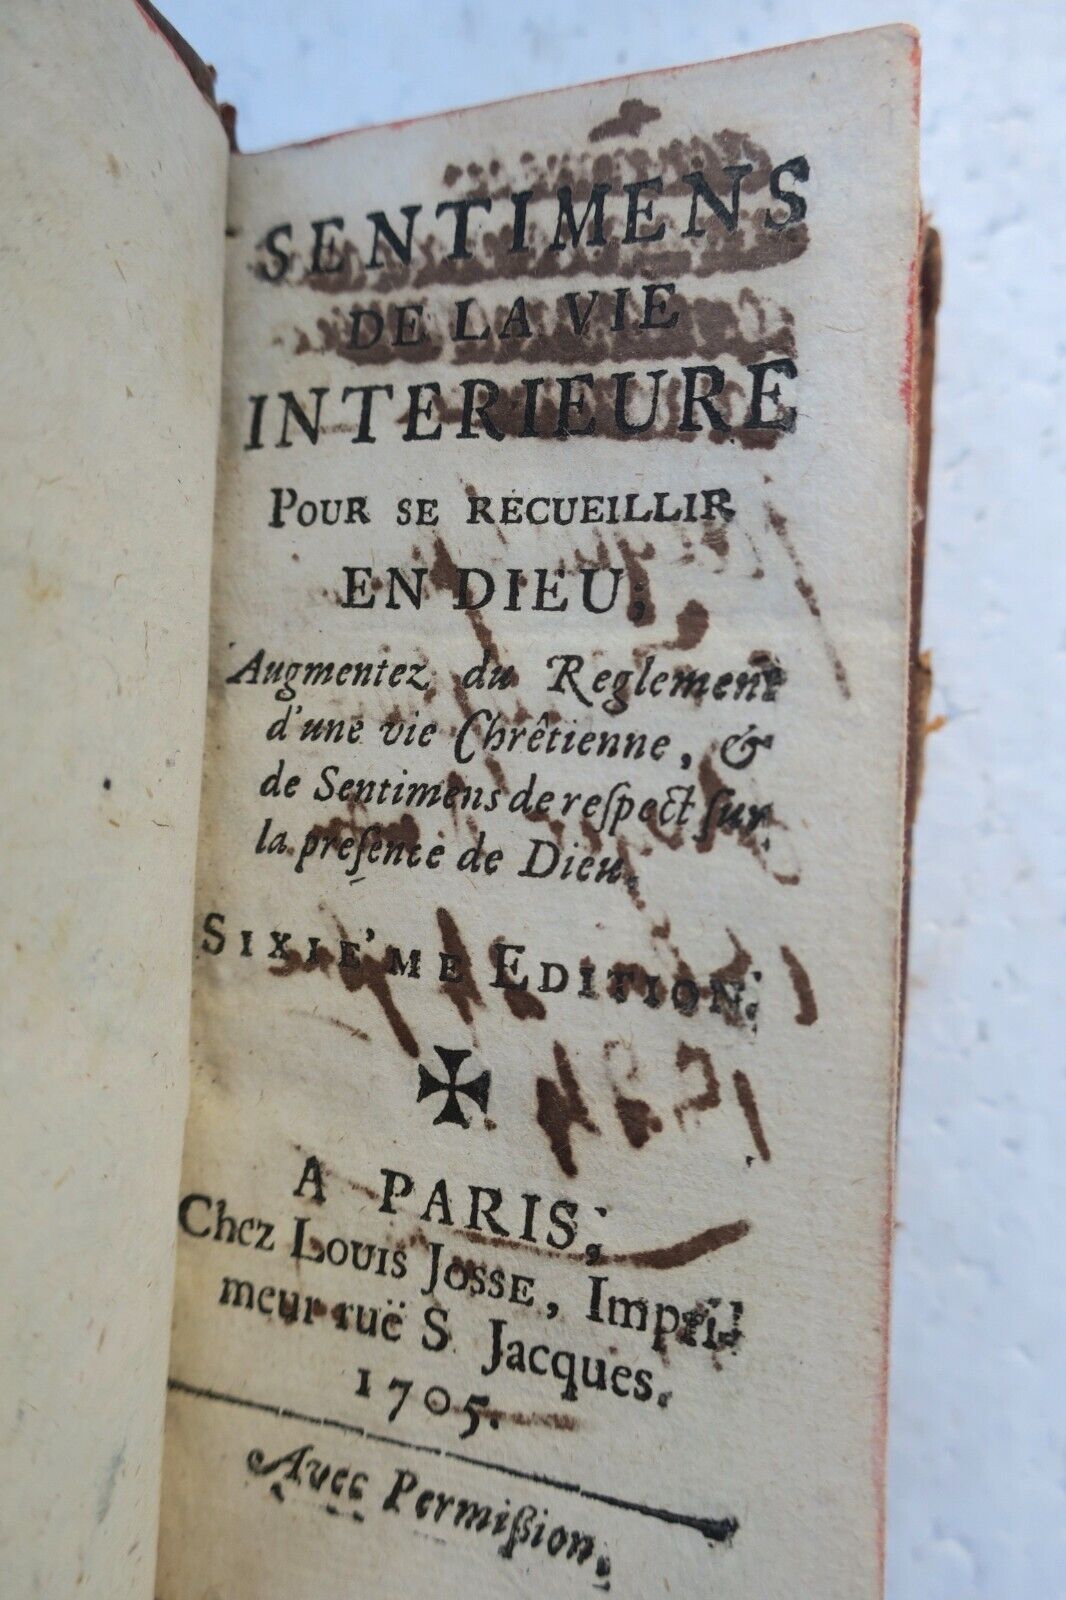 SENTIMENS
DE LA VIE
INTERIEURE
POUR SE RECUEILLIR
EN DIEU;
Augmentez du Reglement
d'une vie Chrêtienne, &
de Sentimens de reſpect ſur
la preſence de Dieu.
SIXIE'ME EDITION.
A PARIS;
Chez LOUIS JOSSE, Impri-
meur ruë S. Jacques.
1705.
Avec Permißion.